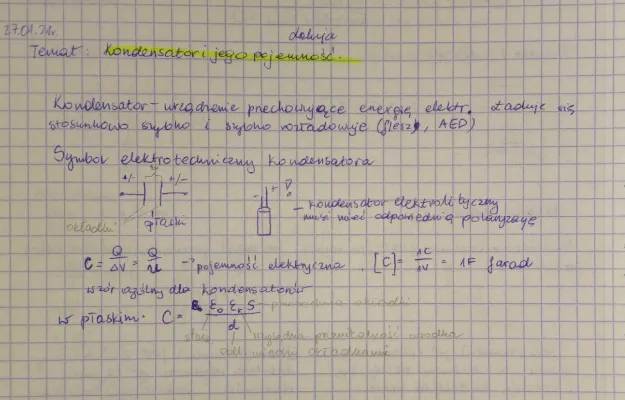 27.01.21r.
Lekcja
Temat: Kondensator i jego pojemność.
Kondensator - urządzenie przechowujące energię elektr. Ładuje się
stosunkowo szybko i szybko rozładowuje (flesz, AED)
Symbol elektrotechniczny kondensatora
+/- +/- - +
płaski
okładki
- kondensator elektrolityczny
musi mieć odpowiednią polaryzację
C = Q/ΔV = Q/U → pojemność elektryczna, [C] = 1C/1V = 1F farad
wzór ogólny dla kondensatorów
w płaskim: C = ε₀ εᵣ S / d
powierzchnia okładki
stała względna przenikalność ośrodka
odl. między okładkami